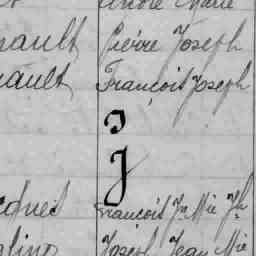 André Marie
nault Pierre Joseph
nault François Joseph
J
J
cques François J Mie Jh
Joseph Jean Mie